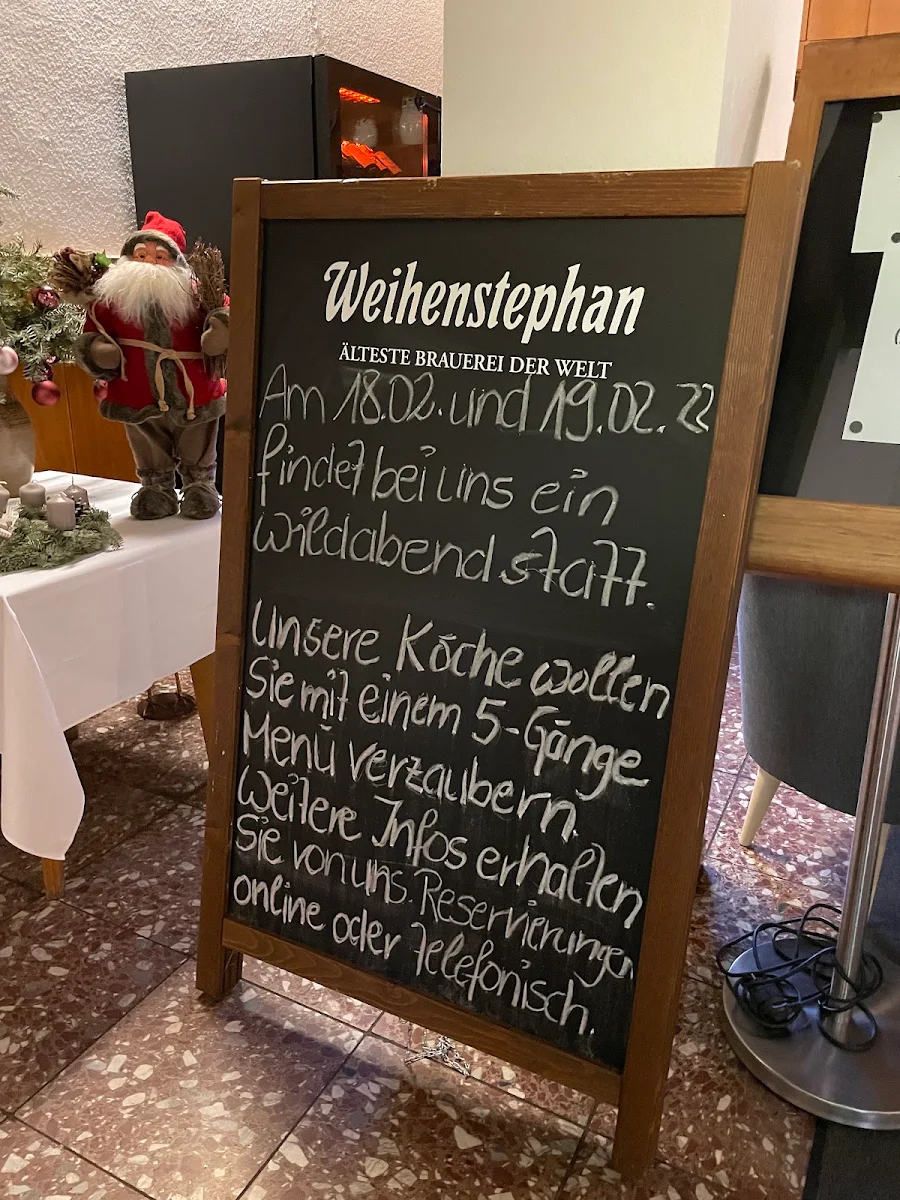 Weihenstephan
ÄLTESTE BRAUEREI DER WELT
Am 18.02. und 19.02.22
findet bei uns ein
wildabend statt.
Unsere Köche wollen
Sie mit einem 5-Gänge
Menü verzaubern.
Weitere Infos erhalten
Sie von uns. Reservierungen
online oder telefonisch.